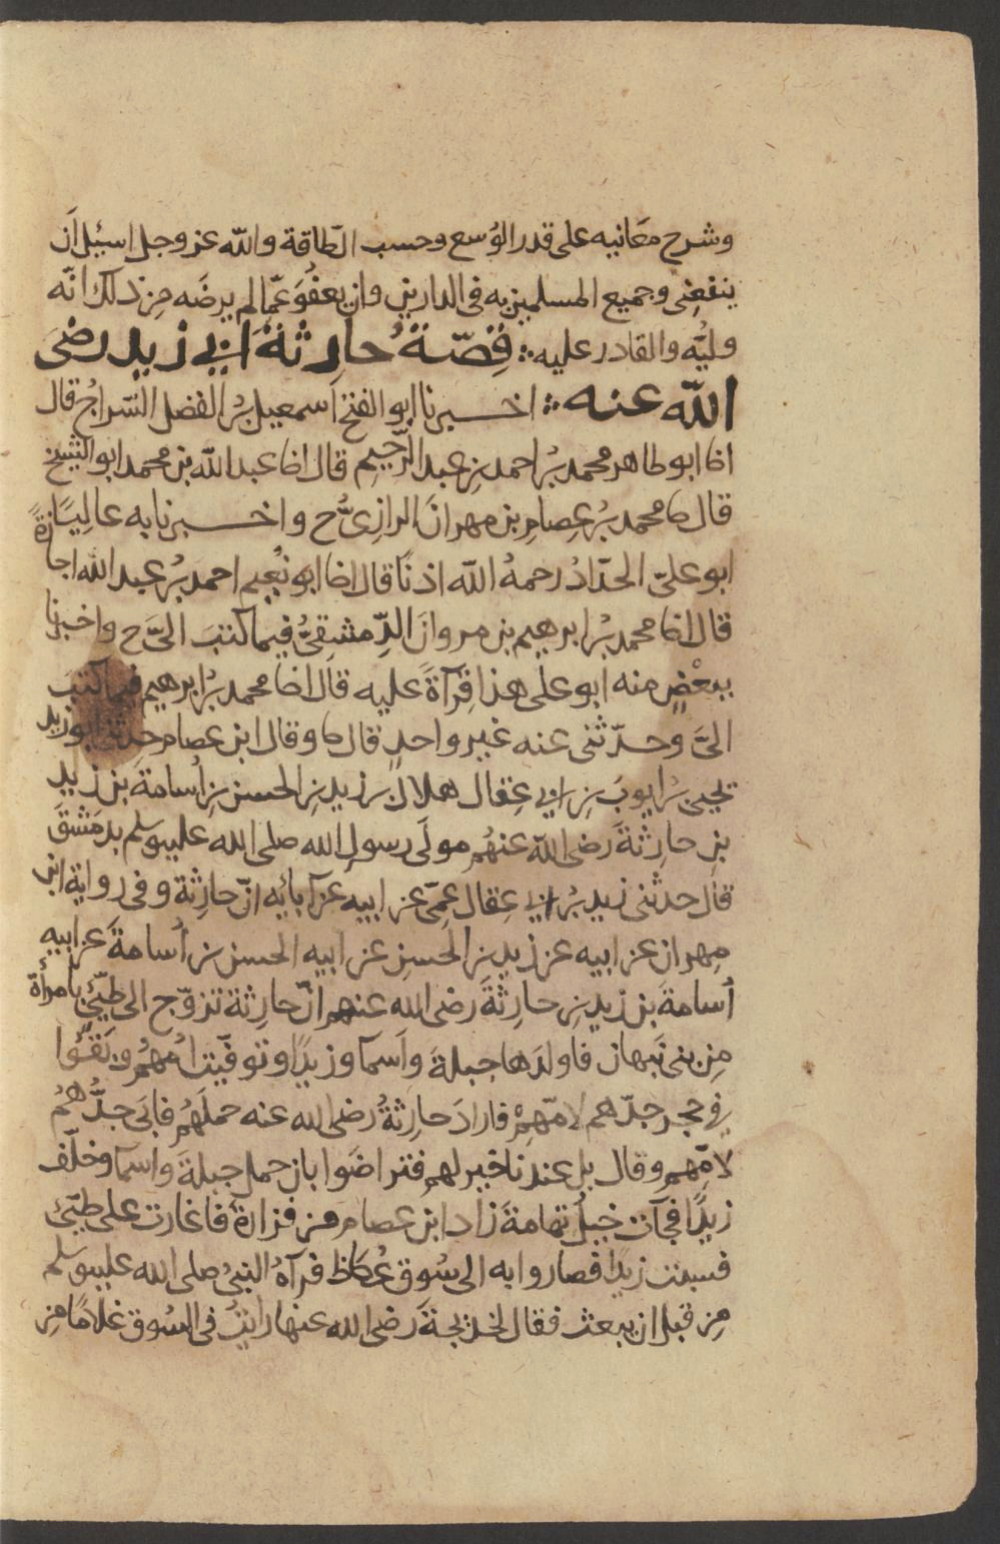 وشرح معانيه على قدر الوُسع وحسب الطّاقة والله عز وجل اسئل أن
ينفعنى وجميع المسلمين به فى الدارين وان يعفُوَ عمّا لم يرضَه مِن ذلك انّه
وليُّه والقادر عليه ∴ قِصّةُ حارِثةَ ابى زيد رضىَ
الله عنه ∴ اخبرنا ابو الفتح اسمعيل بن الفضل السّراجُ قال
انا ابو طاهر محمد بنُ احمد بنِ عبد الرّحيم قال انا عبد الله بن محمد ابو الشيخ
قال نا محمد بنُ عِصامِ بن مهرانَ الرازىُّ ح واخبرنا به عاليًا
ابو علىّ الحدّادُ رحمهُ الله اذنًا قال انا ابو نُعيم احمد بنُ عبد الله اجازةً
قال انا محمد بنُ ابرهيم بن مروانَ الدِّمشقِىُّ فيما كتبَ الىَّ ح واخبرنا
ببعْضٍ منه ابو على هذا قِرآةً عليه قال انا محمد بنُ ابرهيم فيما كتبَ
الىَّ وحدّثنى عنه غير واحدٍ قال نا وقال ابن عصام حدثنا ابو زيد
يحيى بنُ ايوبَ بنِ ابى عِقال هلال بن زيد بنِ الحسن بنِ اُسامةَ بن زيد
بنِ حارِثةَ رضى الله عنهُم مولَى رسولِ الله صلى الله عليه وسلم بدمَشقَ
قال حدثنى زيد بنُ ابى عِقال عمّى عن ابيه عن آبائه انّ حارِثة وفى رواية ابن
مِهران عن ابيه عن زيد بن الحسنِ عن ابيه الحسن بن اُسامةَ عن ابيه
اُسامةَ بن زيد بنِ حارثةَ رضى الله عنهم انّ حارثة تزوّج الى طيّئ بامرأة
مِن بنى نَبهان فاولدَها جبلةَ واَسما وزيدًا وتوفّيت اُمّهمُ وبَقُوا
فى حجر جدّهم لامّهِمْ فارادَ حارِثةُ رضى الله عنه حملَهُم فابَى جدُّهمُ
لامِّهم وقال بل عندنا خير لهم فتراضَوا بان حمل جبلةَ واسما وخلّف
زيدًا فجآت خيلُ تِهامةَ زاد ابن عصام من فزارةَ فاغارت على طيّئ
فسبت زيدًا فصاروا به الى سُوق عُكاظ فرآهُ النبىُّ صلى الله عليه وسلم
مِن قبل ان يبعث فقال لخديجةَ رضى الله عنها رايتُ فى السُوق غلامًا مِن